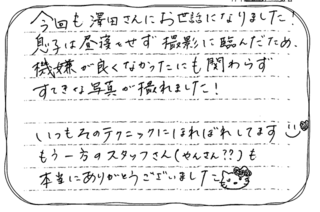 今回も澤田さんにお世話になりました!
息子は昼寝もせず撮影に臨んだため、
機嫌が良くなかったにも関わらず
すてきな写真が撮れました!
いつもそのテクニックにほればれしてます
もう一方のスタッフさん(やんさん??)も
本当にありがとうございました